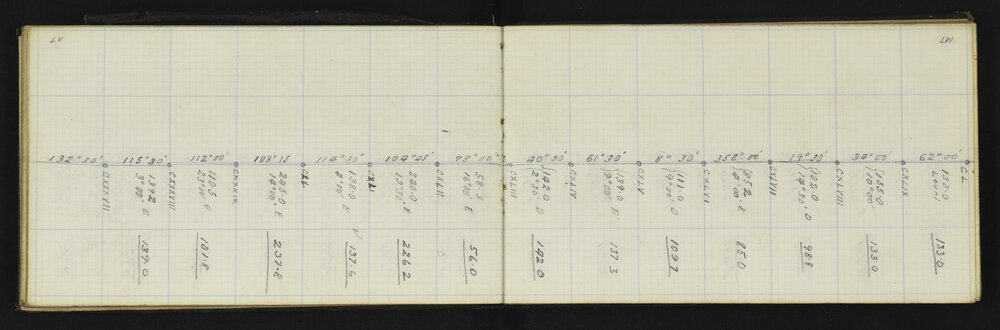 132°30' 115°30' 112°00' 108°15 114°30' 104°45' 78°00' 40°30' 61°30' 8° 30' 358°00' 19°30' 34°00' 62°00'
CXXXVII
139.2
3°00' E
139.0
CXXXVIII
110.5
23°00' E
101.8
CXXXIX
245.0
14°00' E
237.8
CXL
138.0
4°10' E
137.6
CXLI
240.0
E
226.2
CXLII
58.3
16°00' E
56.0
CXLIII
142.0
2°30' D
142.0
CXLIV
139.0
9°00' E
137.3
CXLV
111.0
D
109.7
CXLVI
85.2
4°00' E
85.0
CXLVII
102.0
14°30' D
98.8
CXLVIII
135.0
10°00'
133.0
CXLIX
Level
133.0
CL